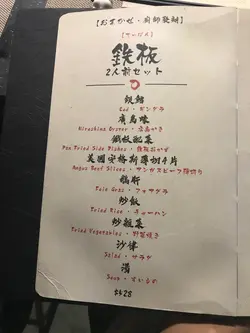 【おまかせ・廚師發辦】
鉄板
2人前セット
Cod・ギンダラ
廣島蠔
Hiroshima Oyster・広島かき
Pan Fried Side Dishes・鉄板おかず
美國安格斯薄切4片
Angus Beef Slices・アンガスビーフ薄切り
鴨肝
Foie Gras・フォアグラ
炒飯
Fried Rice・チャーハン
炒飯菜
Fried Vegetables・野菜焼き
沙律
Salad・サラダ
湯
Soup・すいもの